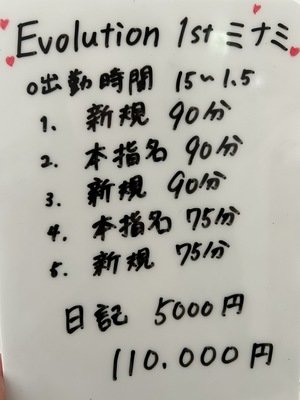 Evolution 1st ミナミ
○出勤時間 15〜1.5
1. 新規 90分
2. 本指名 90分
3. 新規 90分
4. 本指名 75分
5. 新規 75分
日記 5000円
110.000円